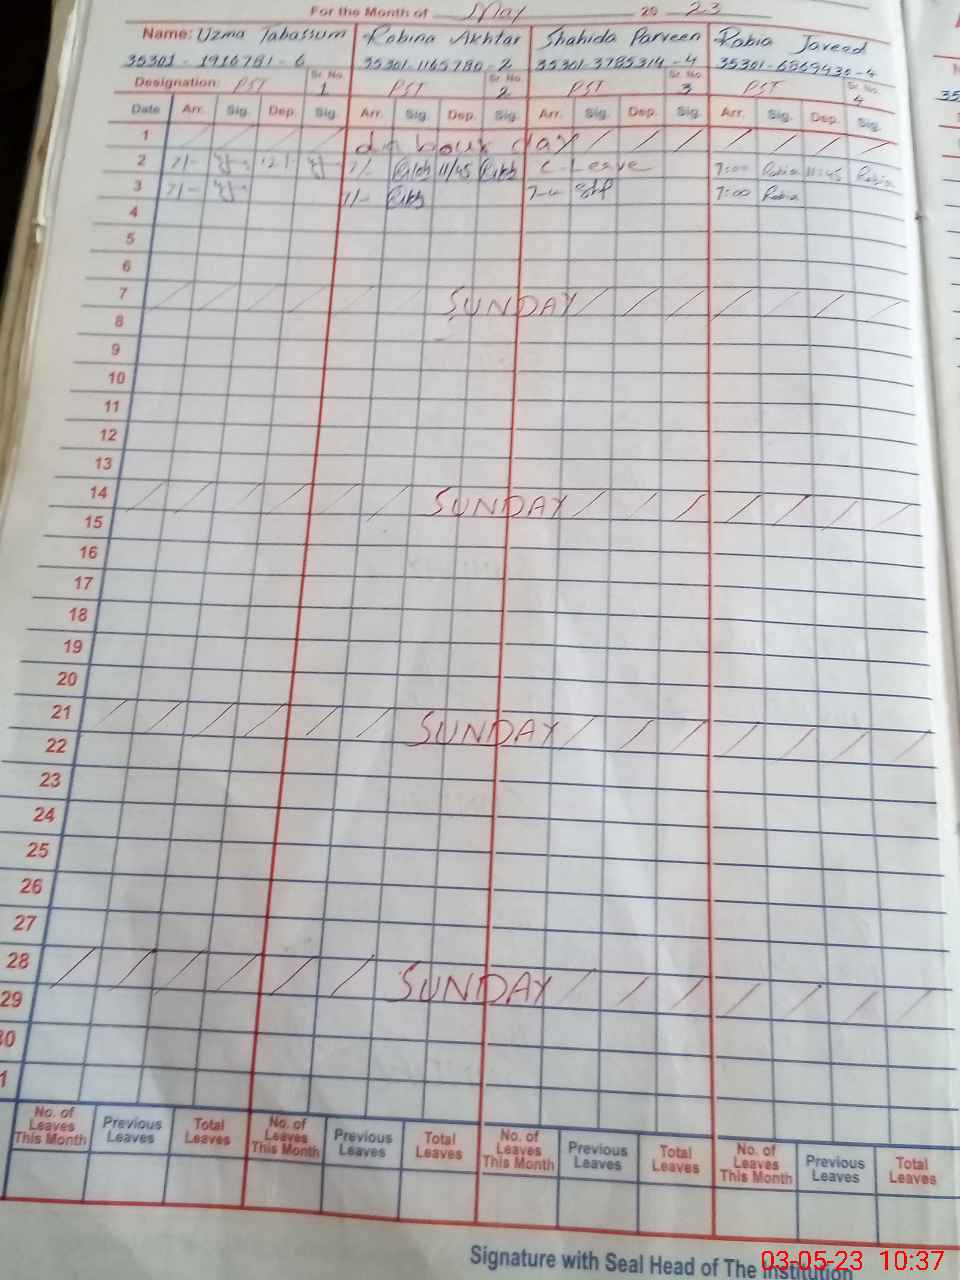 For the Month of May 20 23
Name: Uzma Tabassum Robina Akhtar Shahida Parveen Rabia Javeed
35301-1916781-6 35301-1165780-2 35301-3785314-4 35301-6869430-4
Designation: PST Sr. No. 1 PST Sr. No. 2 PST Sr. No. 3 PST Sr. No. 4
Date Arr. Sig. Dep. Sig. Arr. Sig. Dep. Sig. Arr. Sig. Dep. Sig. Arr. Sig. Dep. Sig.
1 day
2 7/- 12/- 7/- 11/45 C-Leave 7:00 Rabia 11:45 Rabia
3 7/- 7:00 Rabia
4
5
6
7 SUNDAY
8
9
10
11
12
13
14 SUNDAY
15
16
17
18
19
20
21 SUNDAY
22
23
24
25
26
27
28 SUNDAY
29
30
1
No. of Leaves This Month Previous Leaves Total Leaves No. of Leaves This Month Previous Leaves Total Leaves No. of Leaves This Month Previous Leaves Total Leaves No. of Leaves This Month Previous Leaves Total Leaves
Signature with Seal Head of The Institution
03-05-23 10:37